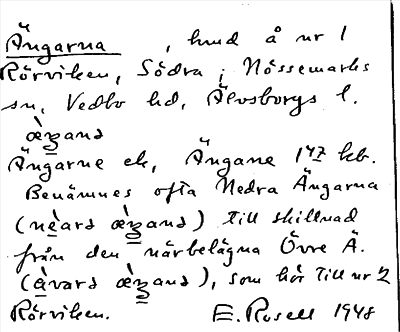 Ängarna, hmd å nr 1
Rörviken, Södra i Nössemarks
sn, Vedbo hd, Älvsborgs l.
æ̀ꜫans
Ängarne ek, Ängane 147 kb.
Benämnes ofta Nedra Ängarna
(nèars æ̀ꜫans) till skillnad
från den närbelägna Övre Ä.
(àvars æ̀ꜫans), som hör till nr 2
Rörviken. E. Rosell 1948